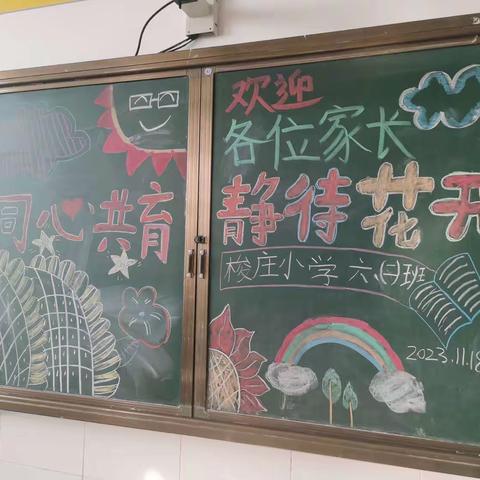 同心共育
欢迎
各位家长
静待花开
梭庄小学 六(一)班
2023.11.18